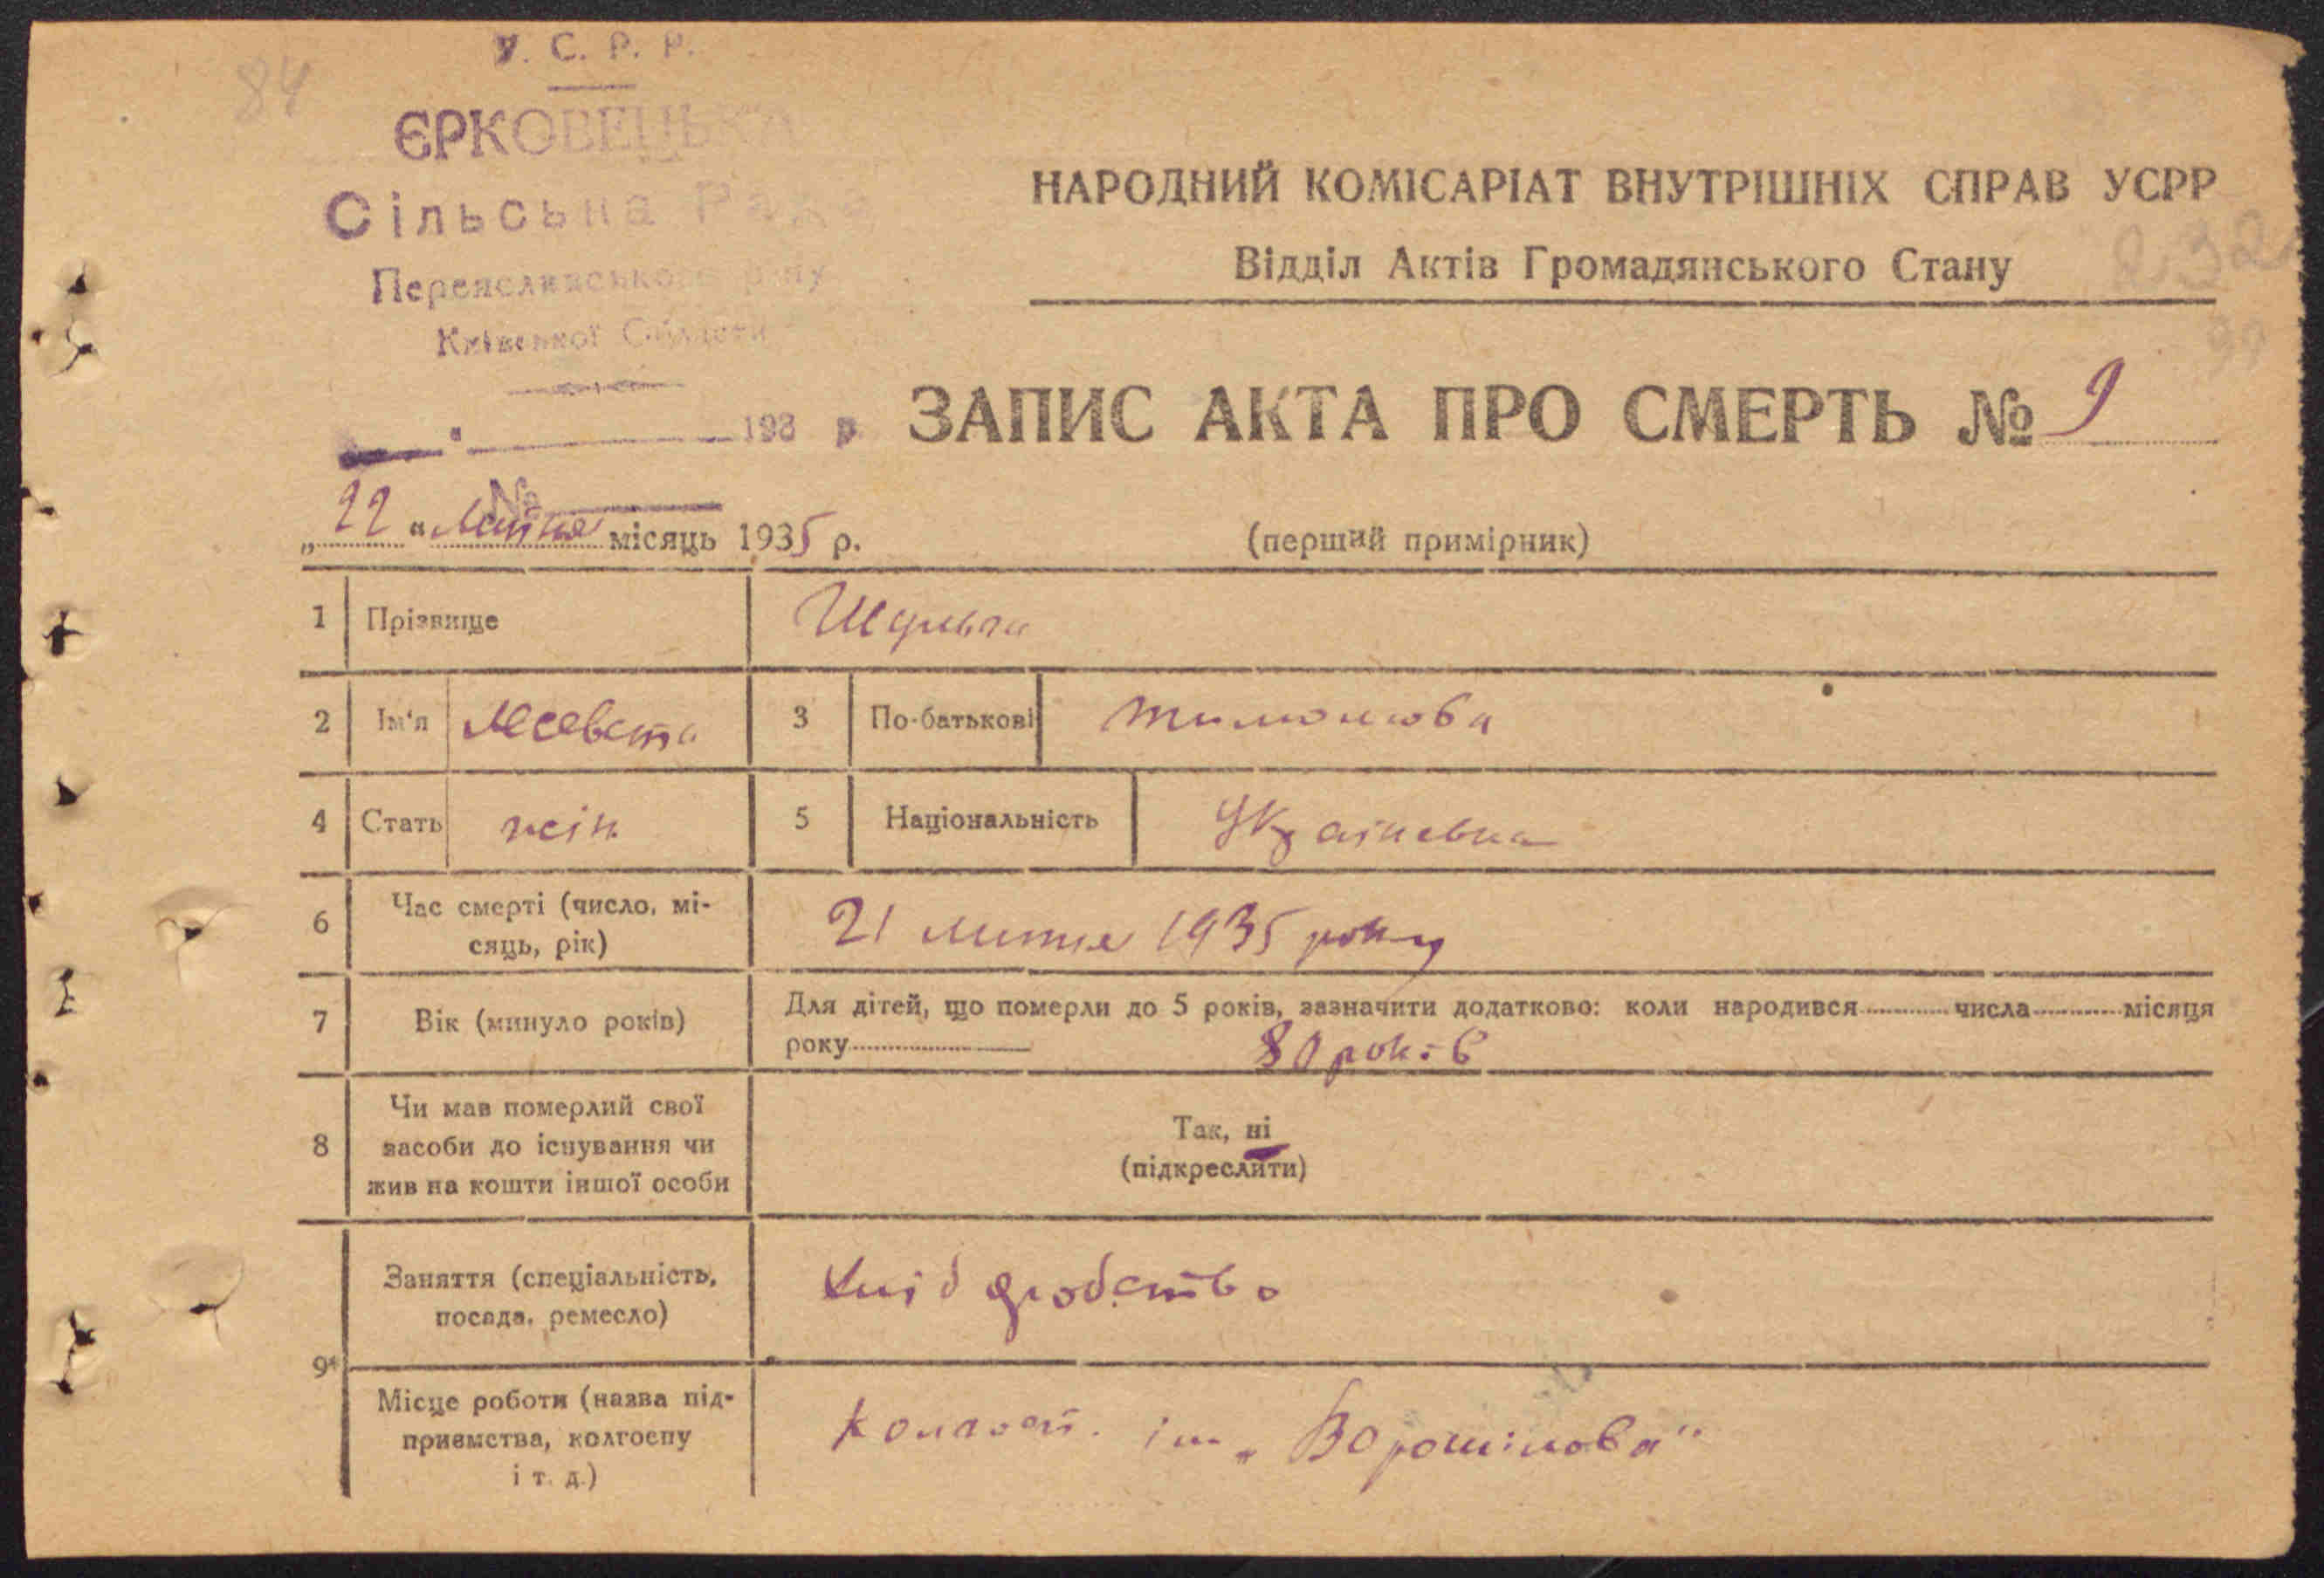 84
У. С. Р. Р.
ЄРКОВЕЦЬКА
Сільська Рада
Переяславського р-ну
Київської Области
НАРОДНИЙ КОМІСАРІАТ ВНУТРІШНІХ СПРАВ УСРР
Відділ Актів Громадянського Стану
232
99
193 р.
ЗАПИС АКТА ПРО СМЕРТЬ № 9
№
„22“ місяць 1935 р.
(перший примірник)
1 Прізвище Шульга
2 Ім'я 3 По-батькові
4 Стать жін 5 Національність
6 Час смерті (число, мі-
сяць, рік) 21 лютня 1935 року
7 Вік (минуло років) Для дітей, що померли до 5 років, зазначити додатково: коли народився числа місяця
року 80 років
8 Чи мав померлий свої
засоби до існування чи
жив на кошти іншої особи
Так, ні
(підкреслити)
9* Заняття (спеціальність,
посада, ремесло) хлібдробство
Місце роботи (назва під-
приємства, колгоспу
і т. д.) ім „Ворошілова“